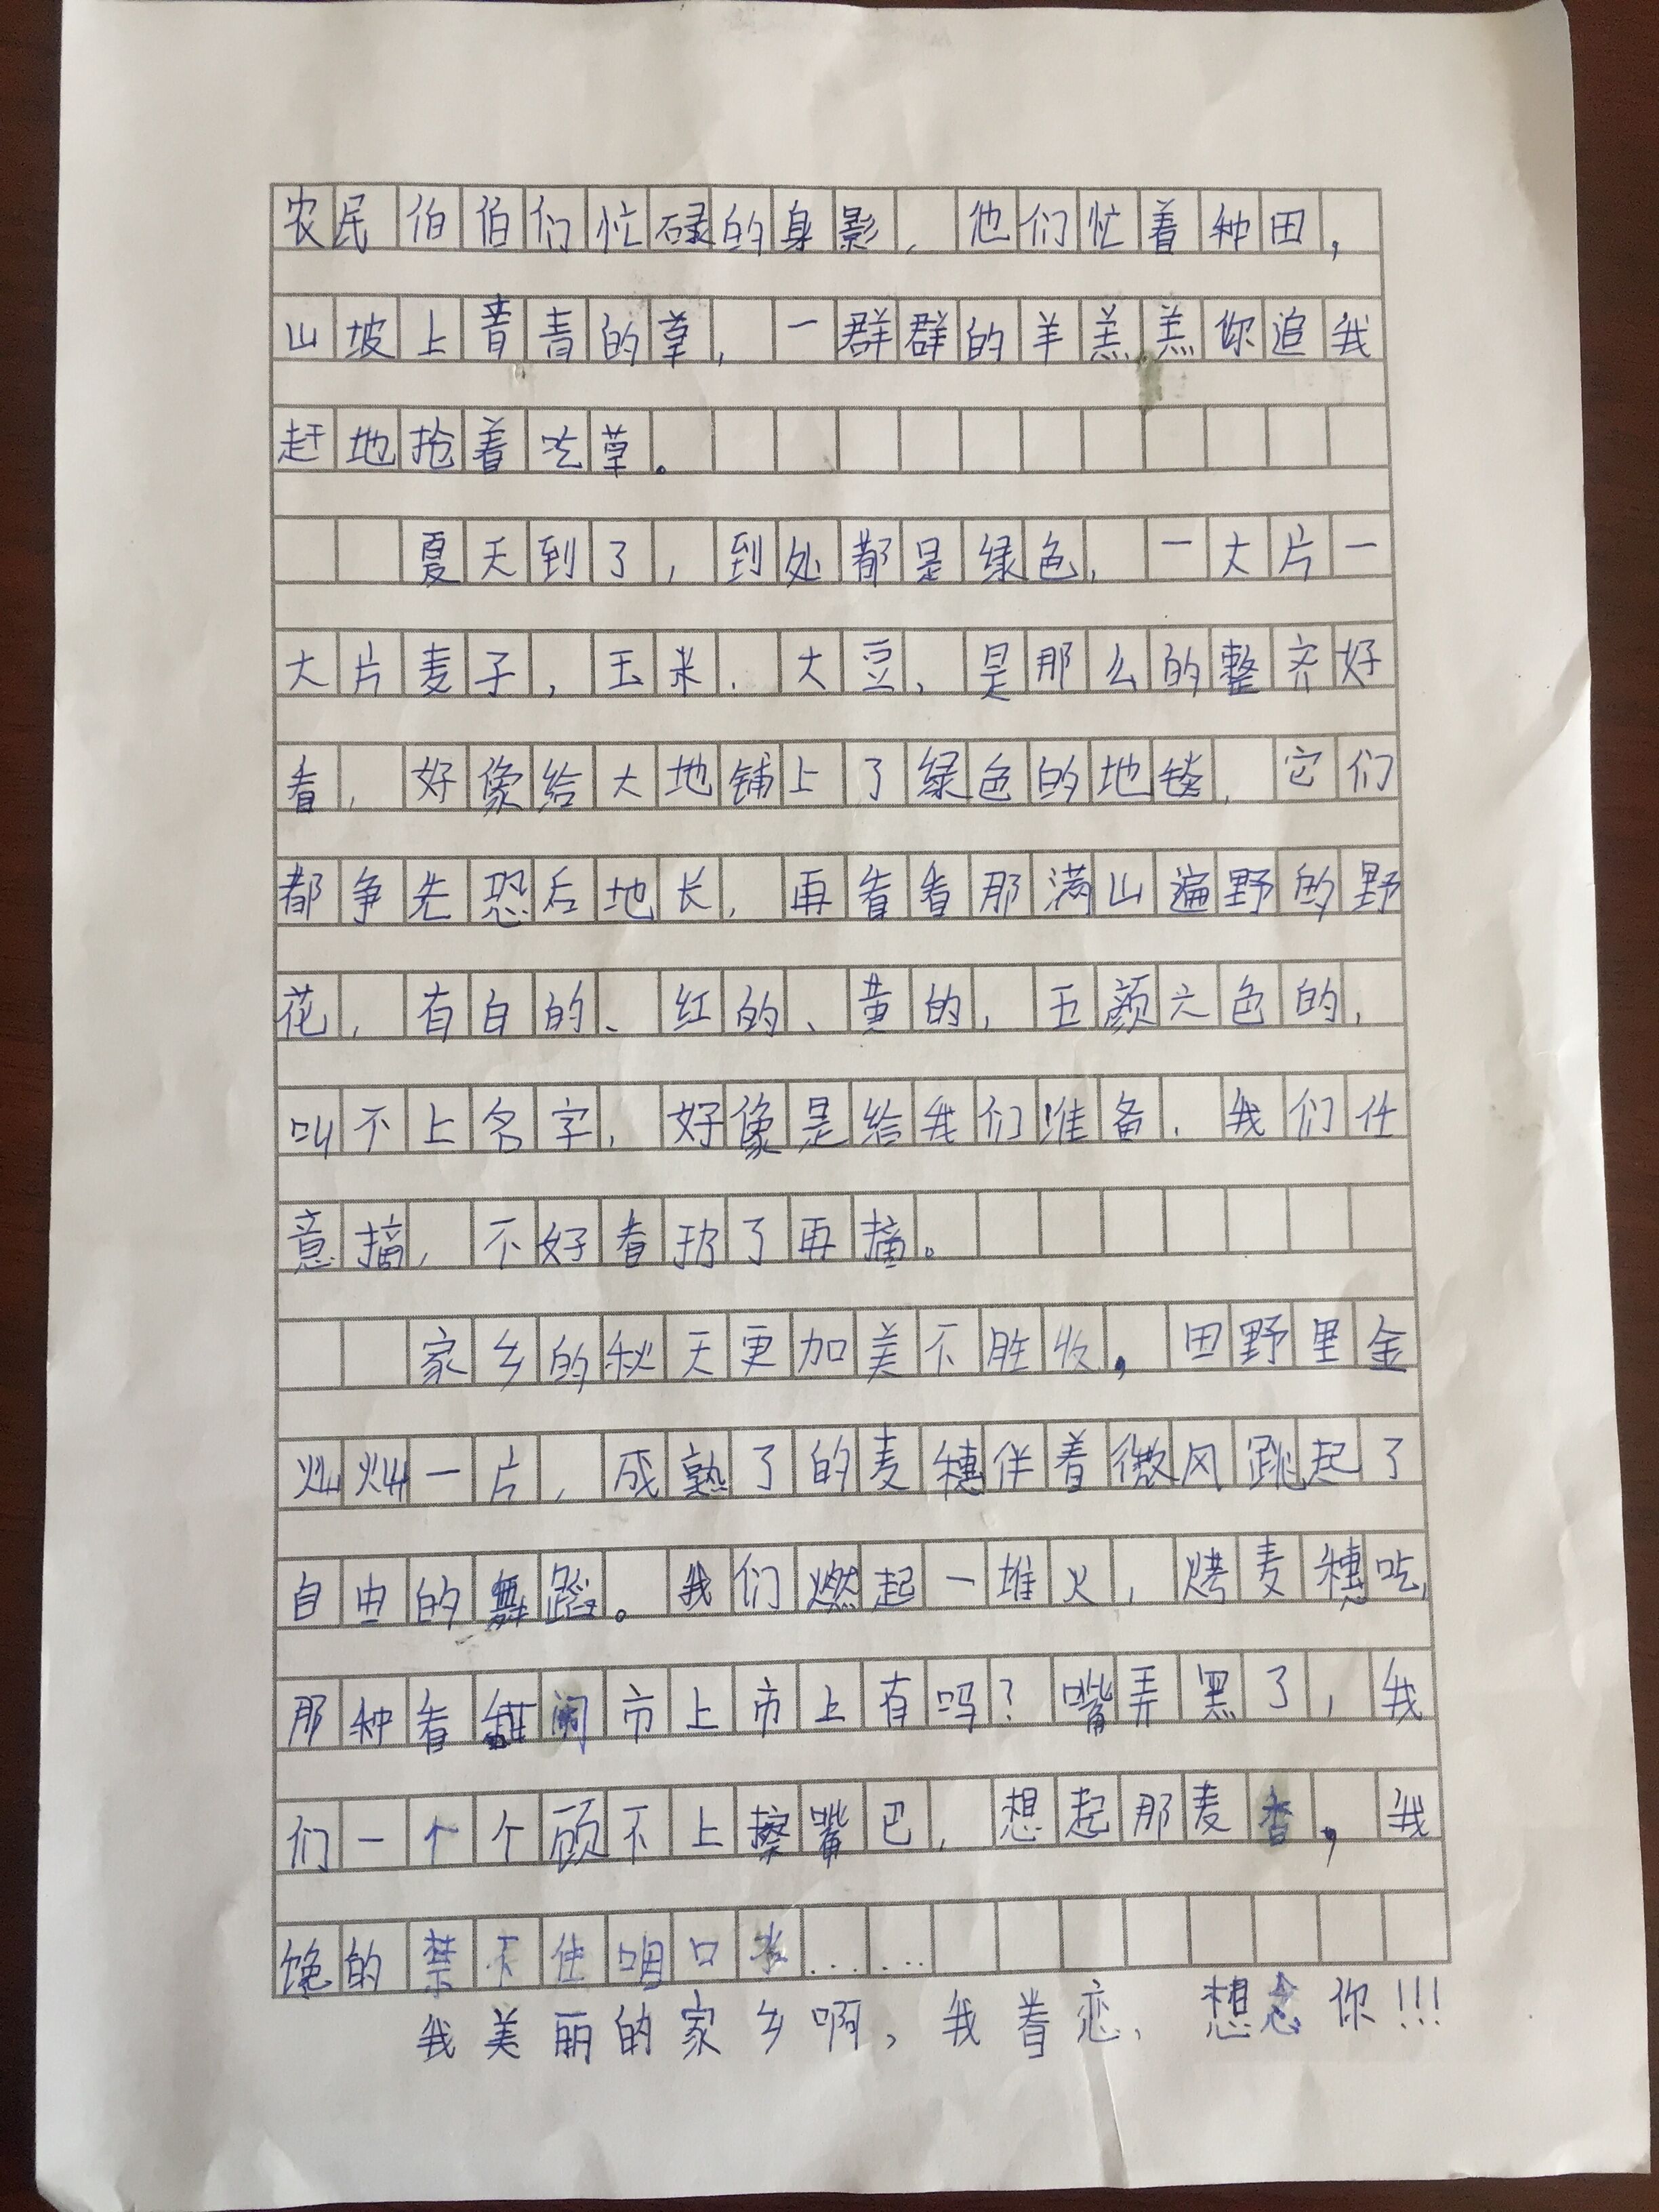 农民伯伯们忙碌的身影，他们忙着种田，
山坡上青青的草，一群群的羊羔羔你追我
赶地抢着吃草。
夏天到了，到处都是绿色，一大片一
大片麦子，玉米、大豆，是那么的整齐好
看，好像给大地铺上了绿色的地毯，它们
都争先恐后地长，再看看那满山遍野的野
花，有白的、红的、黄的，五颜六色的，
叫不上名字，好像是给我们准备，我们任
意摘，不好看扔了再摘。
家乡的秋天更加美不胜收，田野里金
灿灿一片，成熟了的麦穗伴着微风跳起了
自由的舞蹈。我们燃起一堆火，烤麦穗吃，
那种香 闹市上市上有吗？嘴弄黑了，我
们一个个顾不上擦嘴巴，想起那麦香，我
馋的禁不住咽口水……
我美丽的家乡啊，我眷恋、想念你!!!